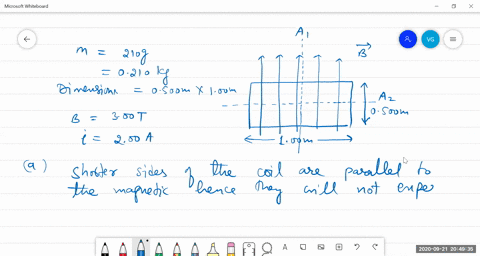 Microsoft Whiteboard
A₁
m = 210g
= 0.210 kg
B
VG
Dimensions = 0.500m × 1.00m
A₂
0.500m
B = 3.00 T
i = 2.00 A
1.00m
(a) Shorter sides of the coil are parallel to
the magnetic hence they will not exper
2020-09-21 20:49:35